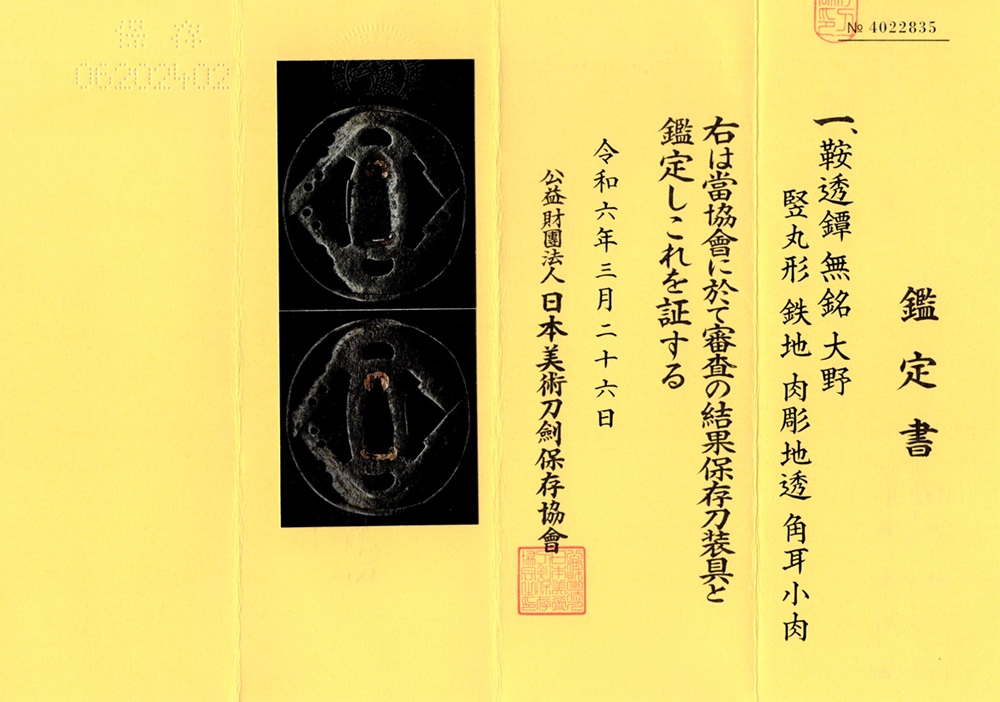 № 4022835
鑑定書
一、鞍透鐔 無銘 大野
竪丸形 鉄地 肉彫地透 角耳小肉
右は當協會に於て審査の結果保存刀装具と
鑑定しこれを証する
令和六年三月二十六日
公益財團法人 日本美術刀劍保存協會
保存
06202402